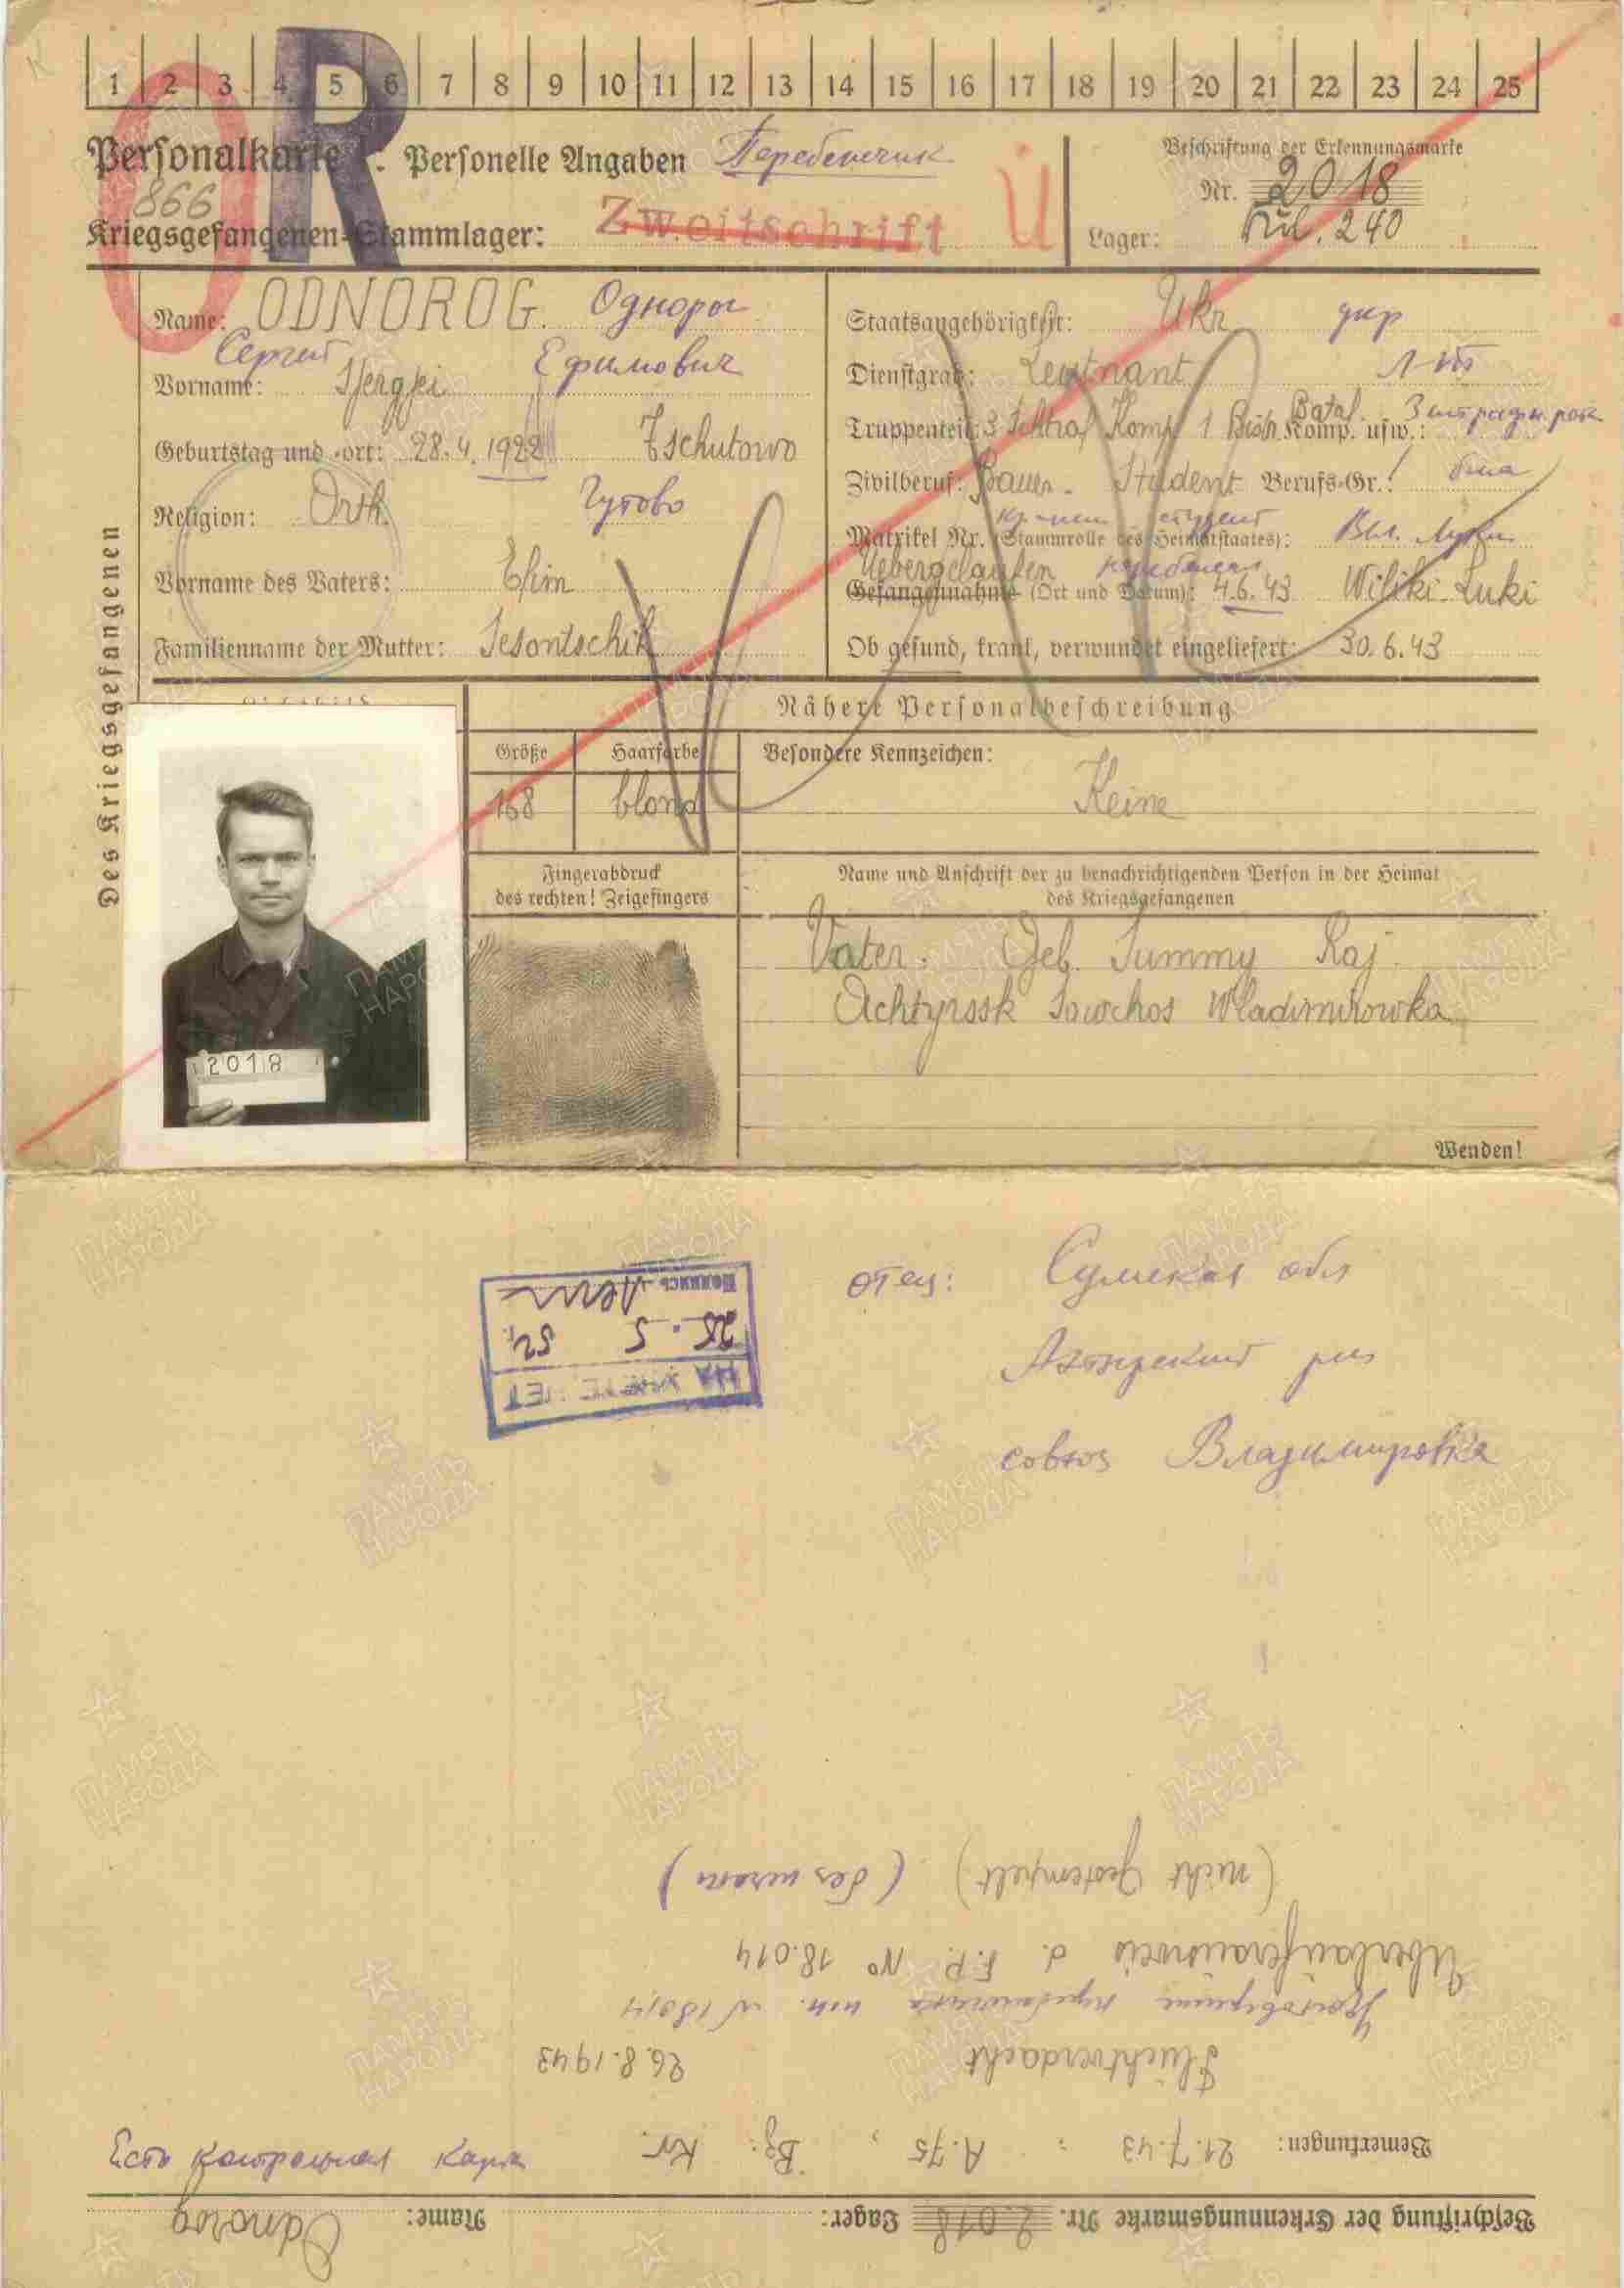 1 2 3 4 5 6 7 8 9 10 11 12 13 14 15 16 17 18 19 20 21 22 23 24 25
R
Personalkarte I: Personelle Angaben Перебежчик
Beschriftung der Erkennungsmarke
Nr. 2018
866
Kriegsgefangenen-Stammlager: Zweitschrift Ü
Lager: 240
Des Kriegsgefangenen
Name: ODNOROG.
Сергей Ефимович
Vorname: Ssergjei
Geburtstag und -ort: 28.4.1922 Tschutowo
Religion: Orth. Чутово
Vorname des Vaters: Efim
Familienname der Mutter:
Staatsangehörigkeit: Ukr укр
Dienstgrad: Leutnant
Truppenteil: 3 Schtraf Komp 1 Batal. Komp. usw.:
Zivilberuf: Bauer. Student Berufs-Gr.:
студент
Matrikel Nr. (Stammrolle des Heimatstaates): Вел. Луки
Uebergelaufen
Gefangennahme (Ort und Datum): 4.6.43 Wiliki-Luki
Ob gesund, krank, verwundet eingeliefert: 30.6.43
Nähere Personalbeschreibung
Größe Haarfarbe Besondere Kennzeichen:
168 blond Keine
Fingerabdruck
des rechten! Zeigefingers
Name und Anschrift der zu benachrichtigenden Person in der Heimat
des Kriegsgefangenen
Vater. Geb. Summy Raj.
Achtyrssk Sowchos Wladimirowka
2018
Wenden!
отец: Сумская обл
Ахтырский р-н
совхоз Владимировка
Подпись
25.5 52 г.
(nicht gestempelt)
Überläuferausweis d. F.P. No 18.014
Fluchtverdacht 26.8.1943
Bemerkungen: 21.7.43 : A.75, Bz: Kr.
Есть контрольная карта
Beschriftung der Erkennungsmarke Nr. 2018 Lager: Name: Odnorog
ПАМЯТЬ
НАРОДА